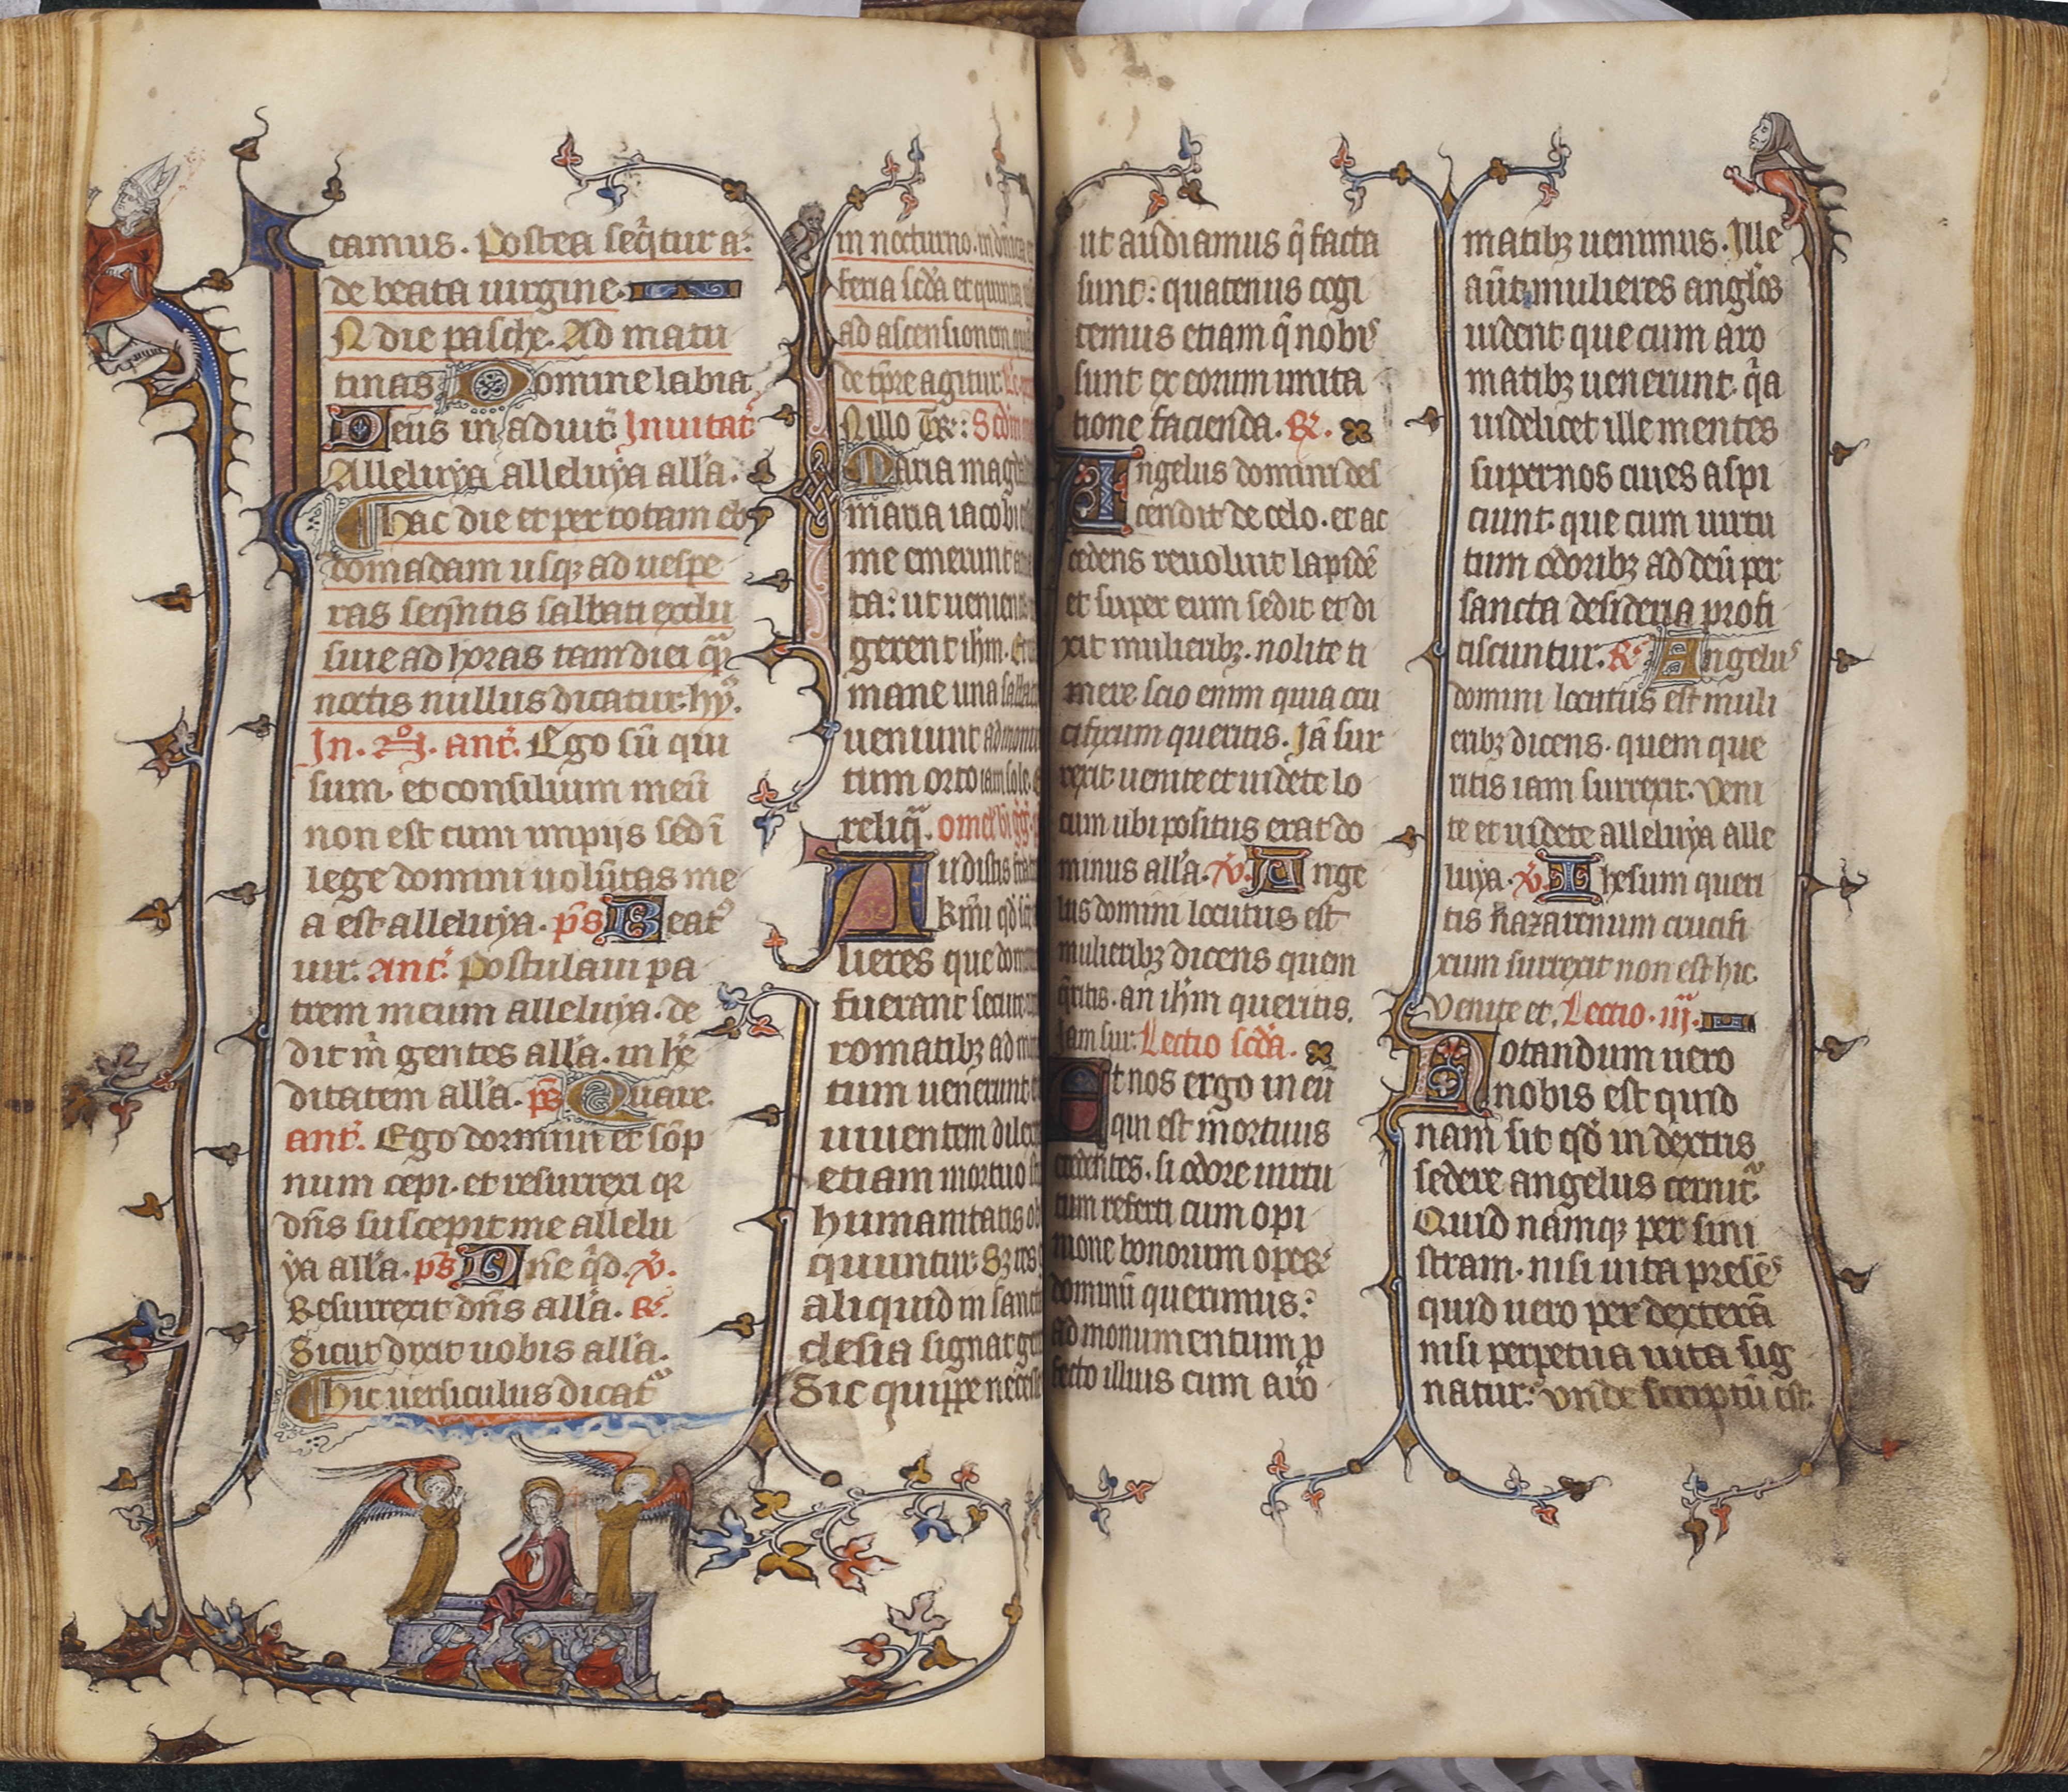 tamus. Postea seq̃tur a᷈.
de beata uirgine.
N die pasche. Ad matu
tinas Domine labia
Deus in adiut᷈. Inuitat᷈.
Alleluya alleluya all'a.
hac die et per totam eb
domadam usq; ad uespe
ras seqñtis sabbati exclu
siue ad horas tam diei q̃
noctis nullus dicatur hy᷈.
In. ant᷈. Ego sũ qui
sum. et consilium meũ
non est cum impijs sed ĩ
lege domini uolũtas me
a est alleluya. p̃s Beat⁹
uir. Ant᷈. Postulaui pa
trem meum alleluya. de
dit m̃ gentes all'a. in he᷈
ditatem all'a. p̃s Quare.
ant᷈. Ego dormiui et sõp
num cepi. et resurrexi qr
dñs suscepit me allelu
ya all'a. p̃s Dñe q̃d. v᷈.
Resurrexit dñs all'a. R᷈.
Sicut dixit uobis all'a.
hic uersiculus dicat᷈
in nocturno. in dñica
feria scđa et quinta
ad ascensionem
de tp̃re agitur.
N illo Tr᷈: Scđm
Maria magd
maria iacobi
me emerunt
ta: ut uenien
gerent ihm. Et
mane una sabbat
ueniunt ad monu
tum orto iam sole.
reliq̃. omel'
Audistis
kr̃mi qđ
lieres que domin
fuerant secute
romatib; ad m
tum uenerunt
uiuentem dilex
etiam mortuo
humanitatis ob
quuntur. Sz res
aliquid in sanct
clesia signat ger
Sic quippe necesse
ut audiamus q̃ facta
sunt: quatenus cogi
temus etiam q̃ nobis
sunt ex eorum imita
tione facienda. R᷈.
Angelus domini des
cendit de celo. et ac
cedens reuoluit lapidẽ
et super eum sedit et di
xit mulierib;. nolite ti
mere scio enim quia cru
cifixum queritis. Jã sur
rexit uenite et uidete lo
cum ubi positus erat do
minus all'a. v᷈. Ange
lus domini locutus est
mulierib; dicens quem
q̃ritis. an ihm queritis.
Jam sur. Lectio scđa.
Et nos ergo in eũ
qui est mortuus
credentes. si odore uirtu
tum referti cum opi
nione bonorum operũ
dominũ querimus:
ad monumentum p
fecto illius cum aro
matib; uenimus. Ille
aũt mulieres angl'os
uident que cum aro
matib; uenerunt. q̃a
uidelicet ille mentes
supernos ciues aspi
ciunt. que cum uirtu
tum odorib; ad deũ per
sancta desideria profi
ciscuntur. R᷈. Angelus
domini locutus est muli
erib; dicens. quem que
ritis iam surrexit. Veni
te et uidete alleluya alle
luya. v᷈. Ihesum queri
tis nazarenum crucifi
xum surrexit non est hic.
Venite et. Lectio. iij᷈.
Notandum uero
nobis est quid
nam sit qđ in dextris
sedere angelus cernit᷈.
Quid namq; per sini
stram. nisi uita presẽs
quid uero per dexterã
nisi perpetua uita sig
natur: Vnde scriptũ est.